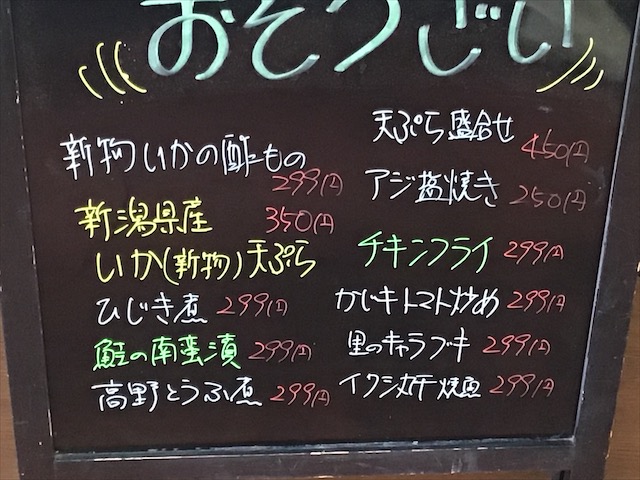 おそうざい
新物いかの酢もの
299円
新潟県産 350円
いか(新物)天ぷら
ひじき煮 299円
鮭の南蛮漬 299円
高野とうふ煮 299円
天ぷら盛合せ 450円
アジ塩焼き 250円
チキンフライ 299円
かじきトマト炒め 299円
里のキャラブキ 299円
イワシ丸干焼魚 299円